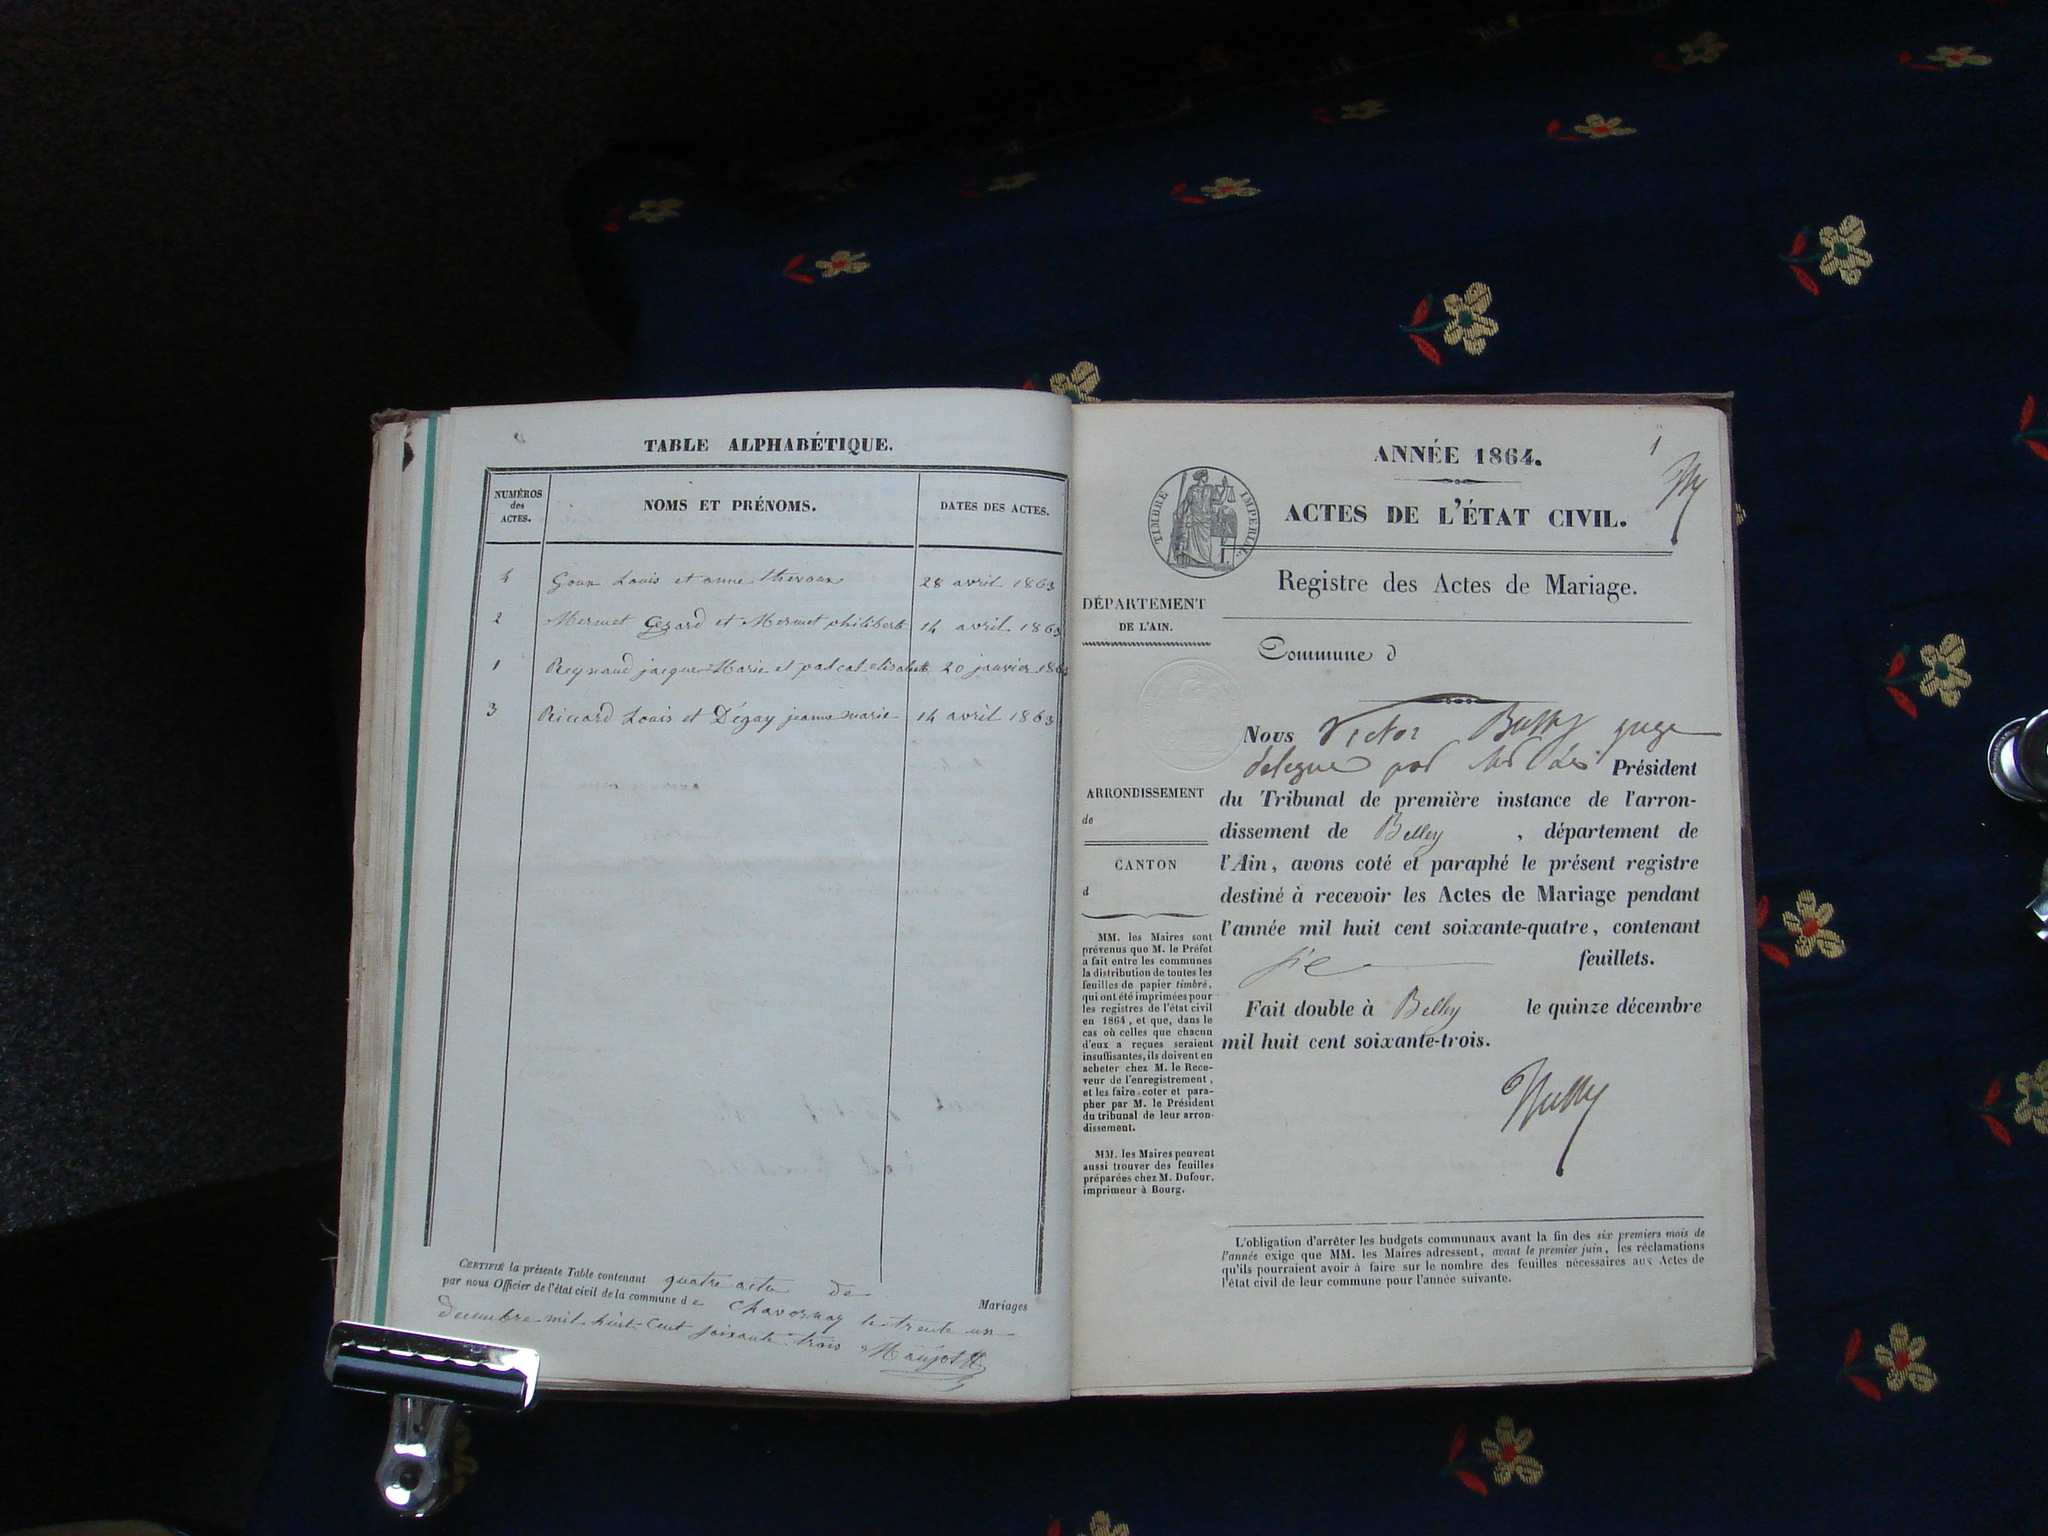 TABLE ALPHABÉTIQUE.
NUMÉROS
des
ACTES.
NOMS ET PRÉNOMS.
DATES DES ACTES.
4 Goux Louis et anne thevoux 28 avril 1863
2 Mermet Cezard et Mermet philiberte 14 avril 1863
1 Reynaud jacque-Marie et palcat elisabeth 20 janvier 1863
3 Riccard Louis et Dégay jeanne marie 14 avril 1863
CERTIFIÉ la présente Table contenant quatre actes de Mariages
par nous Officier de l'état civil de la commune de Chavornay le trente un
decembre mil huit cent soixante trois
ANNÉE 1864.
1
TIMBRE IMPÉRIAL
ACTES DE L'ÉTAT CIVIL.
Registre des Actes de Mariage.
DÉPARTEMENT
DE L'AIN.
ARRONDISSEMENT
de
CANTON
d
MM. les Maires sont
prévenus que M. le Préfet
a fait entre les communes
la distribution de toutes les
feuilles de papier timbré,
qui ont été imprimées pour
les registres de l'état civil
en 1864, et que, dans le
cas où celles que chacun
d'eux a reçues seraient
insuffisantes, ils doivent en
acheter chez M. le Rece-
veur de l'enregistrement,
et les faire coter et para-
pher par M. le Président
du tribunal de leur arron-
dissement.
MM. les Maires peuvent
aussi trouver des feuilles
préparées chez M. Dufour,
imprimeur à Bourg.
Commune d
Nous Victor juge
delegué par Président
du Tribunal de première instance de l'arron-
dissement de Belley , département de
l'Ain, avons coté et paraphé le présent registre
destiné à recevoir les Actes de Mariage pendant
l'année mil huit cent soixante-quatre, contenant
feuillets.
Fait double à Belley le quinze décembre
mil huit cent soixante-trois.
L'obligation d'arrêter les budgets communaux avant la fin des six premiers mois de
l'année exige que MM. les Maires adressent, avant le premier juin, les réclamations
qu'ils pourraient avoir à faire sur le nombre des feuilles nécessaires aux Actes de
l'état civil de leur commune pour l'année suivante.